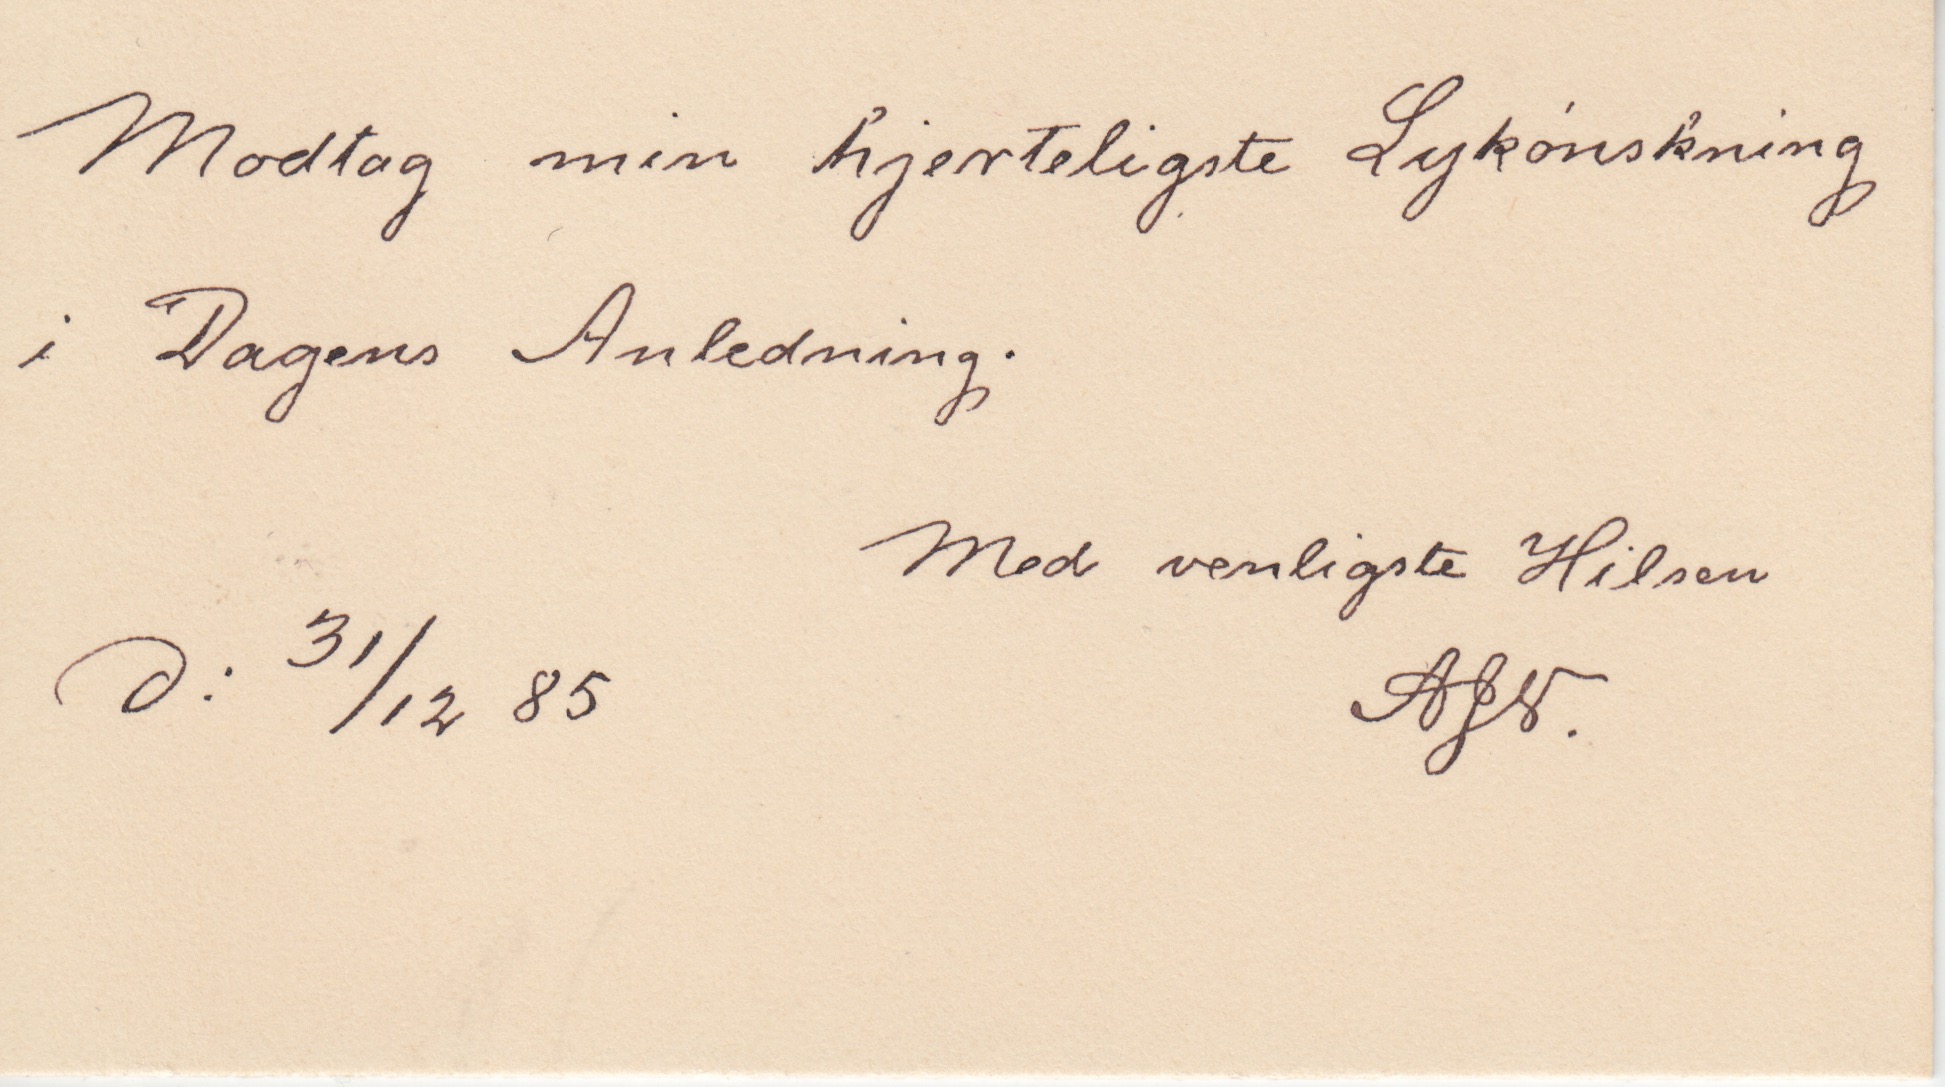 Modtag min hjerteligste Lykónskning
i Dagens Anledning.
Med venligste Hilsen
D: 31/12 85
AJV.